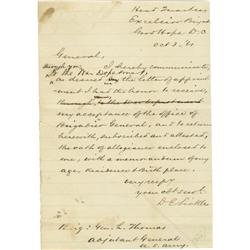 Head Quarters
Excelsior Brigade
Good Hope D.C.
Oct 3. '61
General,
through you I hereby communicate,
to the War Department,
as desired in the letter of appoint
ment I had the honor to receive,
my acceptance of the office of
Brigadier General, and to return
herewith, subscribed and attested,
the oath of allegiance enclosed to
me, with a memorandum of my
age, residence & birth place.
very resp'y
your obt servt
D E Sickles
Brig: Genl. L. Thomas
Adjutant General
U.S. Army